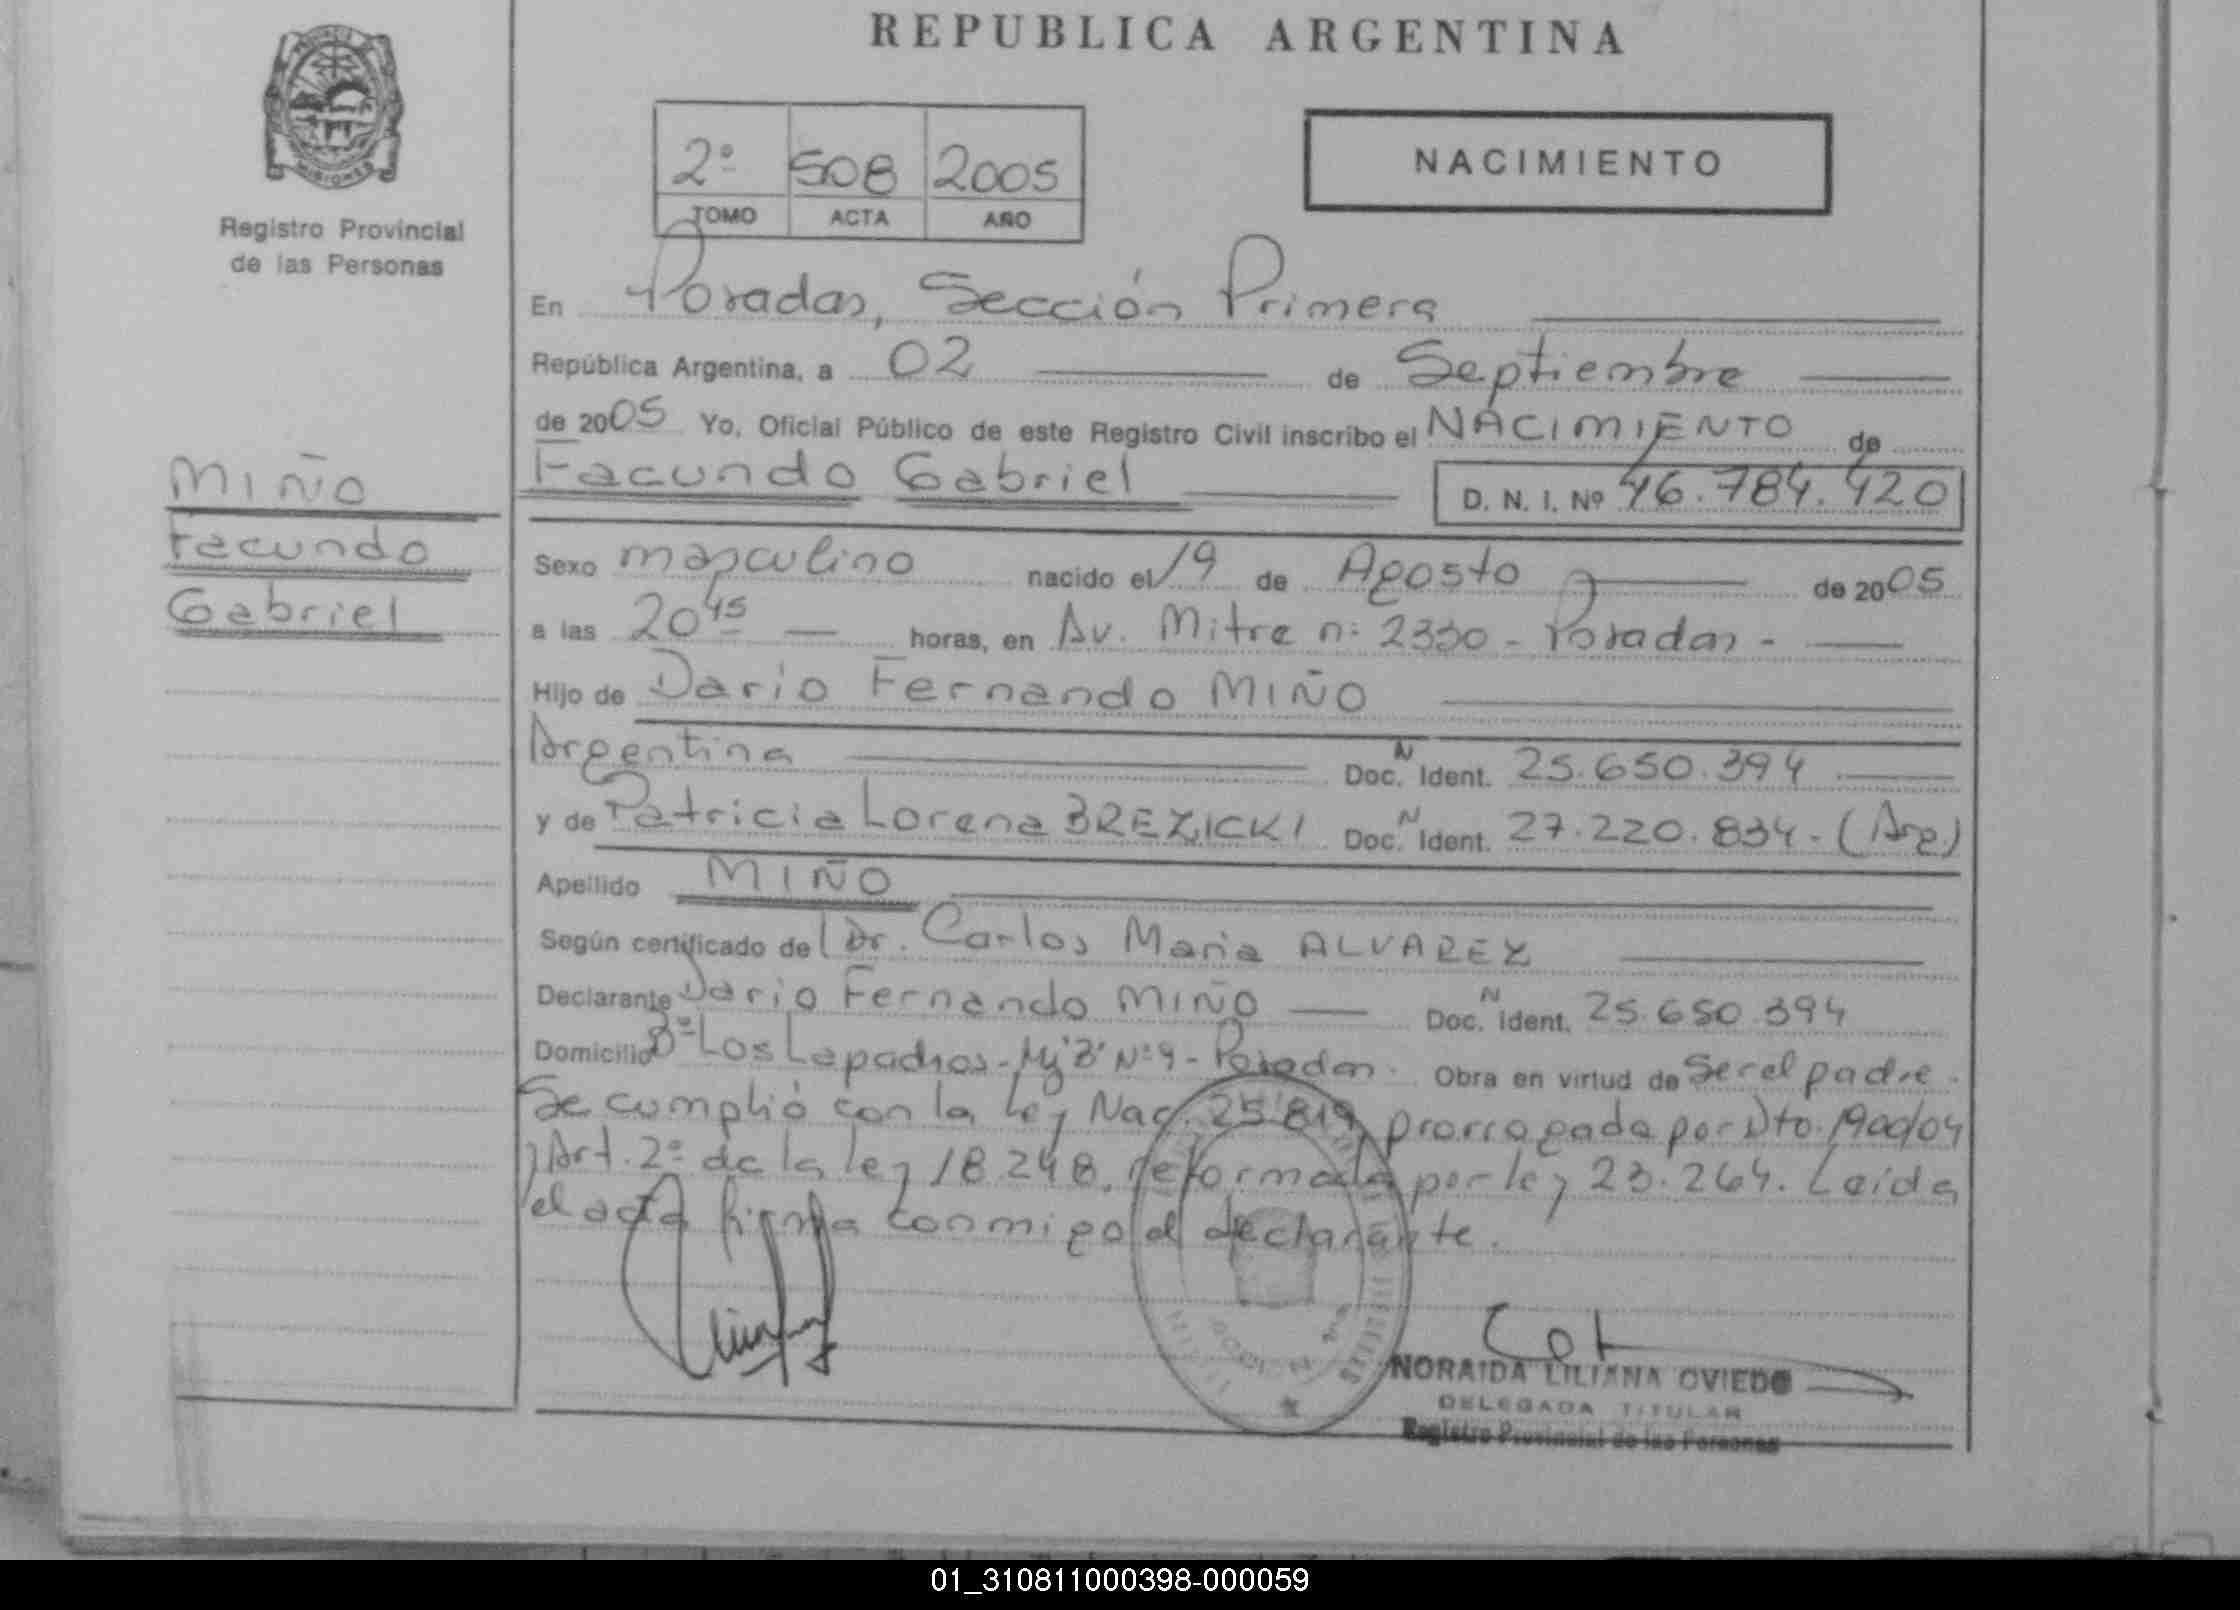 REPUBLICA ARGENTINA
PROVINCIA DE
MISIONES
Registro Provincial
de las Personas
2º 508 2005
TOMO ACTA AÑO
NACIMIENTO
En Posadas, Sección Primera
República Argentina, a 02 de Septiembre
de 2005 Yo, Oficial Público de este Registro Civil inscribo el NACIMIENTO de
Facundo Gabriel D. N. I. Nº 46.784.420
MIÑO
Facundo
Gabriel
Sexo masculino nacido el 19 de Agosto de 2005
a las 20 45 horas, en Av. Mitre nº 2330 - Posadas -
Hijo de Dario Fernando MIÑO
Argentina Doc. N Ident. 25.650.394
y de Patricia Lorena BREZICKI Doc. N Ident. 27.220.834. (Arg)
Apellido MIÑO
Según certificado del Dr. Carlos Maria ALVAREZ
Declarante Dario Fernando MIÑO Doc. N Ident. 25.650.394
Domicilio Bº Los Lapachos - Mz B' Nº 9 - Posadas. Obra en virtud de Ser el padre.
Se cumplió con la Ley Nac. 25.819, prorrogada por Dto. 1900/04
y Art. 2º de la ley 18.248, reformada por ley 23.264. Leída
el acta firma conmigo el declarante.
NORAIDA LILIANA OVIEDO
DELEGADA TITULAR
Registro Provincial de las Personas
01_310811000398-000059